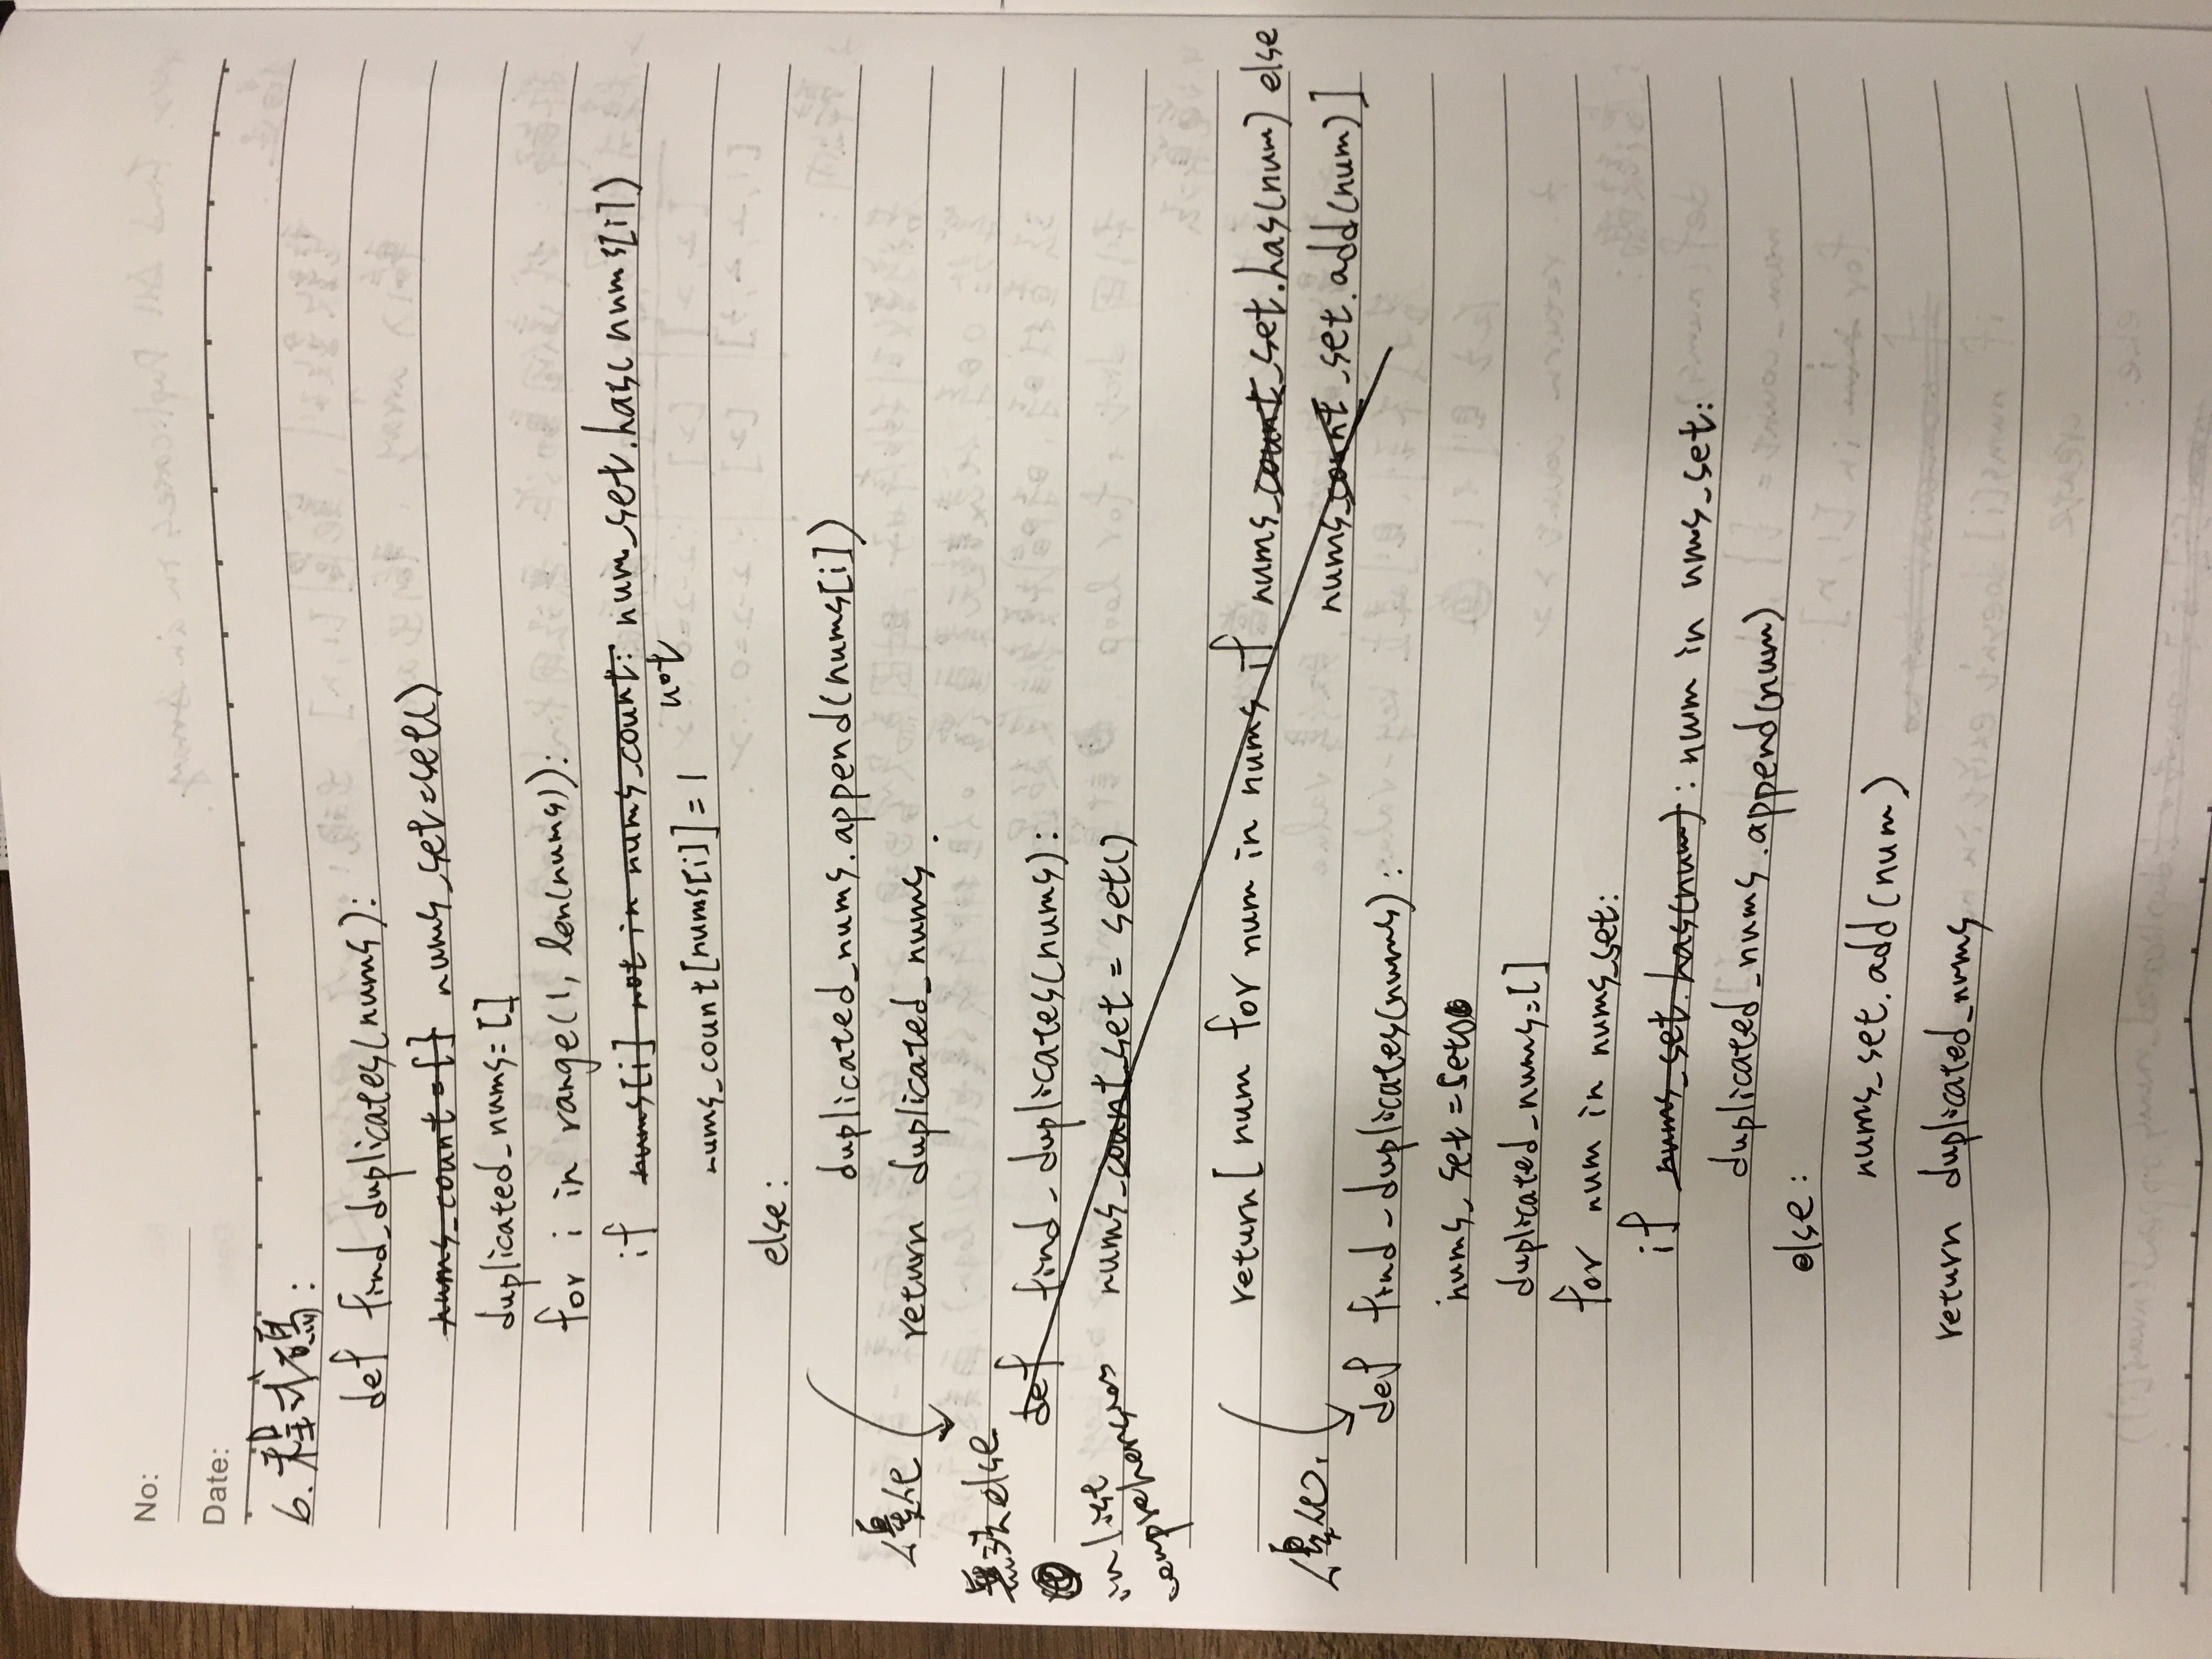 No:
Date:
6. 程式碼:
def find_duplicates(nums):
nums_count={} nums_set=set()
duplicated_nums=[]
for i in range(1, len(nums)):
if nums[i] not in nums_count: num_set.has(nums[i])
not
nums_count[nums[i]]=1
else:
duplicated_nums.append(nums[i])
優化
return duplicated_nums.
無法else
in list comprehension
def find_duplicates(nums):
nums_count_set = set()
return [ num for num in nums if nums_count_set.has(num) else
nums_count_set.add(num)]
優化.
def find_duplicates(nums):
nums_set=set()
duplicated_nums=[]
for num in nums_set:
if nums_set.has(num): num in nums_set:
duplicated_nums.append(num)
else:
nums_set.add(num)
return duplicated_nums